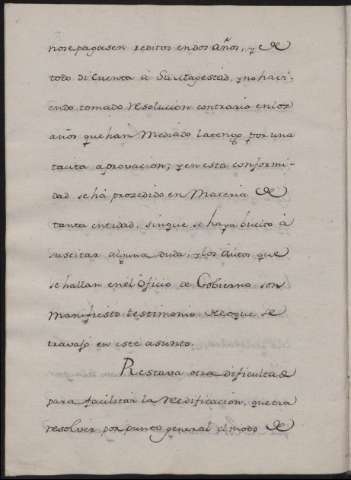 nose pagasen reditos en dos Años, y de
todo di Cuenta à Su Magestad, y no havi-
endo tomado resolucion contraria en los
años que han mediado la tengo por una
tacita aprovacion; y en esta conformi-
dad se há prozedido en Materia de
tanta entidad, sin que se haya buelto à
suscitar alguna duda, y los Autos que
se hallan en el Oficio de Gobierno son
manifiesto testimonio de lo que se
travajo en este asunto.
Restava otra dificultad
para facilitar la redificacion, que era
resolver por punto general el modo de